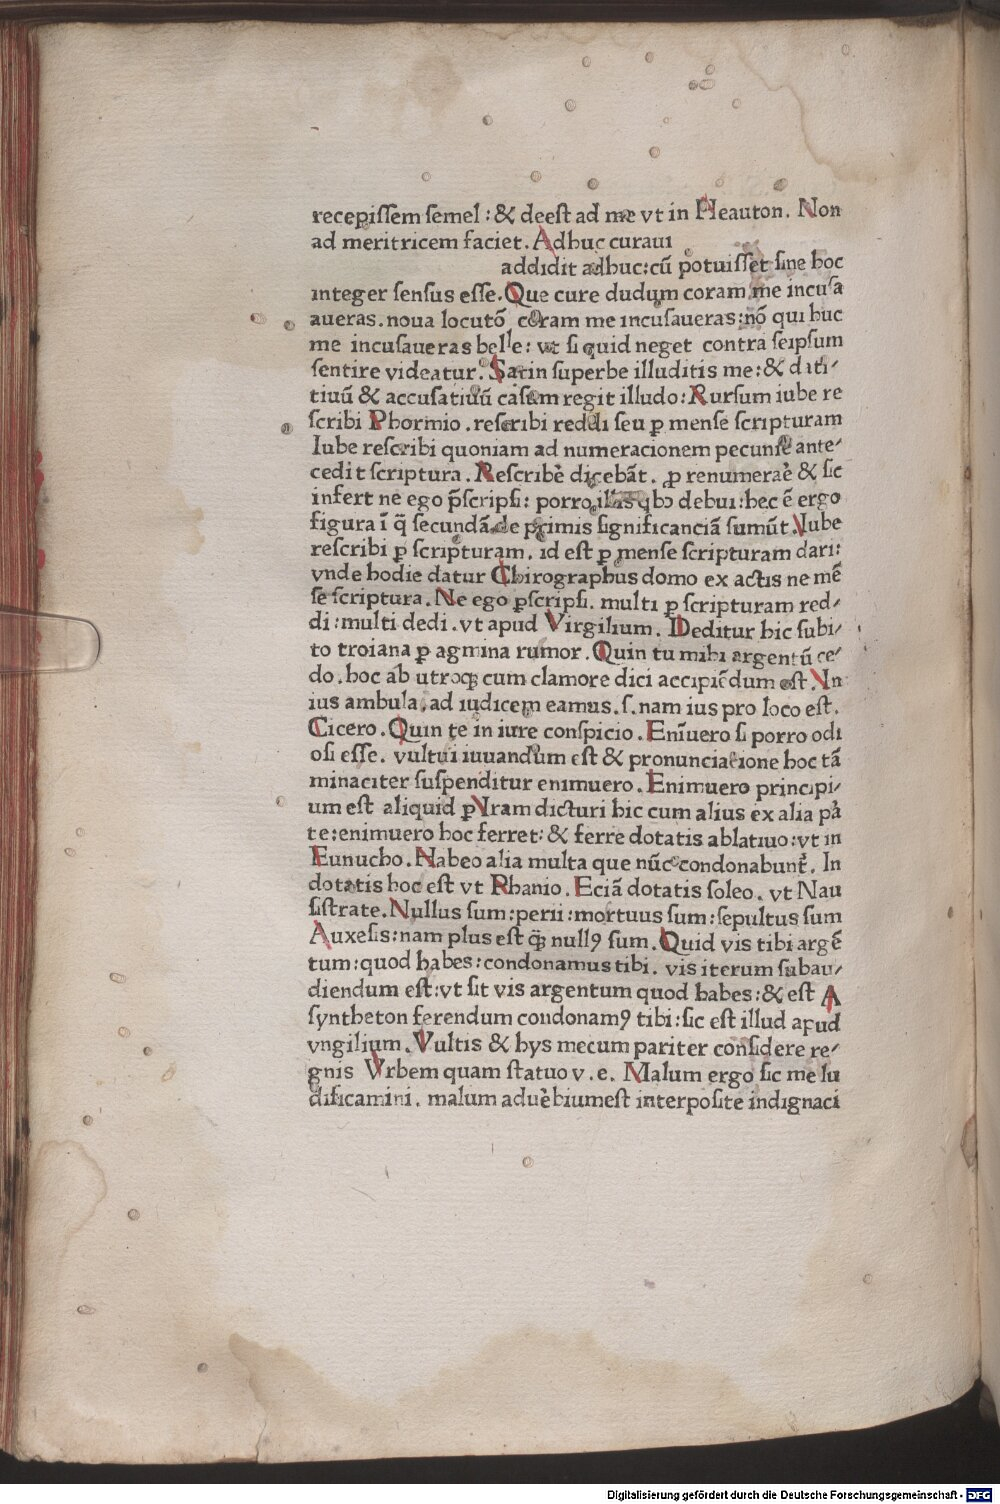 recepissem semel : & deest ad me vt in Heauton. Non
ad meritricem faciet. Adhuc curaui
addidit adhuc: cū potuisset sine hoc
integer sensus esse. Que cure dudum coram me incusa
aueras. noua locutō coram me incusaueras: nō qui huc
me incusaueras belle: vt si quid neget contra seipsum
sentire videatur. Satin superbe illuditis me: & dati⸗
tiuū & accusatiuū casum regit illudo: Rursum iube re
scribi Phormio. rescribi reddi seu ꝑ mense scripturam
Iube rescribi quoniam ad numeracionem pecunie ante⸗
cedit scriptura. Rescribē dicebāt. ꝓ renumeraē & sic
infert ne ego p̄scripsi: porro illas qbꝫ debui: hec ē ergo
figura ī q̄ secundā de primis significanciā sumūt. Iube
rescribi ꝑ scripturam. id est ꝑ mense scripturam dari:
vnde hodie datur Chirographus domo ex actis ne mē
se scriptura. Ne ego ꝑscripsi. multi ꝑ scripturam red⸗
di: multi dedi. vt apud Virgilium. Deditur hic subi⸗
to troiana ꝑ agmina rumor. Quin tu mihi argentū ce⸗
do. hoc ab utroqꝫ cum clamore dici accipiēdum est. In
ius ambula. ad iudicem eamus. s. nam ius pro loco est.
Cicero. Quin te in iure conspicio. Enīuero si porro odi
osi esse. vultui iuuandum est & pronunciacione hoc tā
minaciter suspenditur enimuero. Enimuero principi⸗
um est aliquid ꝑ Iram dicturi hic cum alius ex alia pa
te: enimuero hoc ferret: & ferre dotatis ablatiuo: vt in
Eunucho. Nabeo alia multa que nūc condonabunt̄. In
dotatis hoc est vt Phanio. Eciā dotatis soleo. vt Nau
sistrate. Nullus sum: perii: mortuus sum: sepultus sum
Auxesis: nam plus est q̄ꝫ nullꝰ sum. Quid vis tibi argē
tum: quod habes: condonamus tibi. vis iterum subau⸗
diendum est: vt sit vis argentum quod habes: & est A
syntheton ferendum condonamꝰ tibi: sic est illud apud
vngilium. Vultis & hys mecum pariter considere re⸗
gnis Vrbem quam statuo v. e. Malum ergo sic me lu
dificamini. malum aduēbiumest interposite indignaci
Digitalisierung gefördert durch die Deutsche Forschungsgemeinschaft - DFG